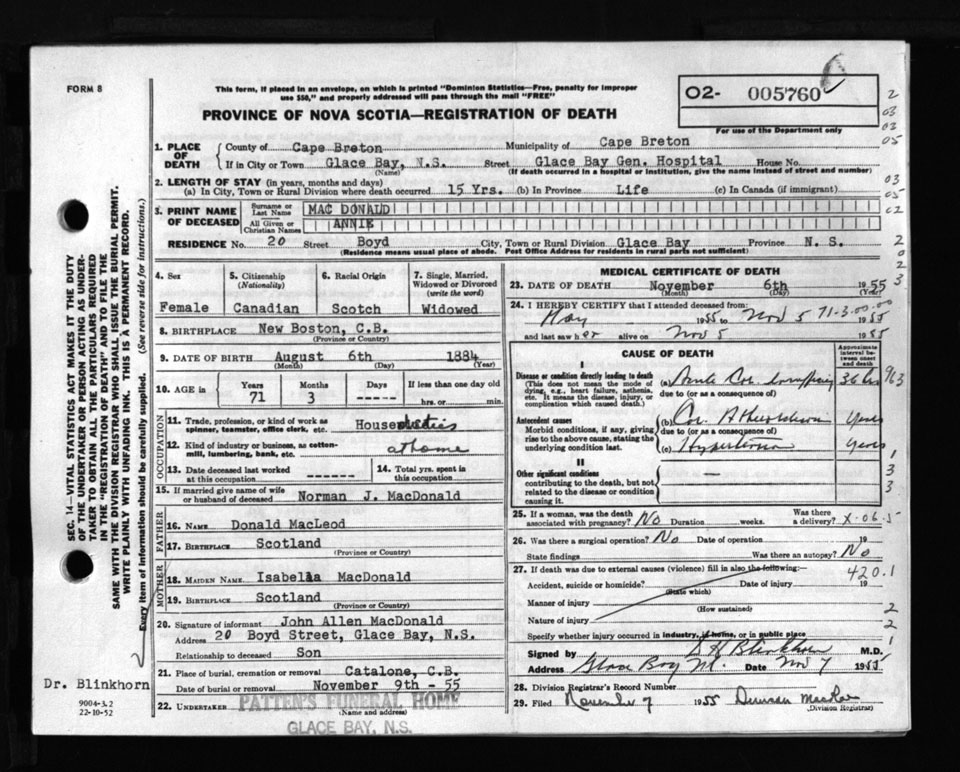 FORM 8
This form, if placed in an envelope, on which is printed "Dominion Statistics—Free, penalty for improper
use $50," and properly addressed will pass through the mail "FREE"
PROVINCE OF NOVA SCOTIA—REGISTRATION OF DEATH
O2- 005760
For use of the Department only
2
03
03
05
03
05
02
2
0
2
3
1. PLACE OF DEATH
County of Cape Breton Municipality of Cape Breton
If in City or Town Glace Bay, N.S. Street Glace Bay Gen. Hospital House No.
(Name) (If death occurred in a hospital or institution, give the name instead of street and number)
2. LENGTH OF STAY (in years, months and days)
(a) In City, Town or Rural Division where death occurred 15 Yrs. (b) In Province Life (c) In Canada (if immigrant)
3. PRINT NAME OF DECEASED
Surname or Last Name MAC DONALD
All Given or Christian Names ANNIE
RESIDENCE No. 20 Street Boyd City, Town or Rural Division Glace Bay Province N. S.
(Residence means usual place of abode. Post Office Address for residents in rural parts not sufficient)
4. Sex
Female
5. Citizenship (Nationality)
Canadian
6. Racial Origin
Scotch
7. Single, Married, Widowed or Divorced (write the word)
Widowed
8. BIRTHPLACE New Boston, C.B.
(Province or Country)
9. DATE OF BIRTH August 6th 1884
(Month) (Day) (Year)
10. AGE in
Years 71
Months 3
Days ---
If less than one day old
hrs. or min.
OCCUPATION
11. Trade, profession, or kind of work as spinner, teamster, office clerk, etc.
12. Kind of industry or business, as cotton-mill, lumbering, bank, etc. at home
13. Date deceased last worked at this occupation
14. Total yrs. spent in this occupation
15. If married give name of wife or husband of deceased Norman J. MacDonald
FATHER
16. NAME Donald MacLeod
17. BIRTHPLACE Scotland
(Province or Country)
MOTHER
18. MAIDEN NAME Isabella MacDonald
19. BIRTHPLACE Scotland
(Province or Country)
20. Signature of informant John Allen MacDonald
Address 20 Boyd Street, Glace Bay, N.S.
Relationship to deceased Son
21. Place of burial, cremation or removal Catalone, C.B.
Date of burial or removal November 9th - 55
22. UNDERTAKER PATTEN'S FUNERAL HOME
(Name and Address)
GLACE BAY, N.S.
MEDICAL CERTIFICATE OF DEATH
23. DATE OF DEATH November 6th 1955
(Month) (Day) (Year)
24. I HEREBY CERTIFY that I attended deceased from:
May 1955 to Nov 5 1955
71-3-00-00
and last saw her alive on Nov 5 1955
CAUSE OF DEATH
Approximate interval between onset and death
I
Disease or condition directly leading to death
(This does not mean the mode of dying, e.g., heart failure, asthenia, etc. It means the disease, injury, or complication which caused death.)
(a) Acute Cor. 36 hrs
963
due to (or as a consequence of)
Antecedent causes
Morbid conditions, if any, giving rise to the above cause, stating the underlying condition last.
(b) Cor. years
due to (or as a consequence of)
(c) Hypertension years
II
Other significant conditions
contributing to the death, but not related to the disease or condition causing it.
1
3
3
25. If a woman, was the death associated with pregnancy? No Duration weeks. Was there a delivery? X-06-5
26. Was there a surgical operation? No Date of operation 19
State findings Was there an autopsy? No
27. If death was due to external causes (violence) fill in also the following:—
420.1
Accident, suicide or homicide? Date of injury 19
(State which)
Manner of injury
(How sustained)
Nature of injury
2
2
Specify whether injury occurred in industry, in home, or in public place
1
Signed by Blinkhorn M.D.
Address Glace Bay N.S. Date Nov 7 1955
28. Division Registrar's Record Number
29. Filed November 7 1955 Duncan
(Division Registrar)
SEC. 14—VITAL STATISTICS ACT MAKES IT THE DUTY
OF THE UNDERTAKER OR PERSON ACTING AS UNDER-
TAKER TO OBTAIN ALL THE PARTICULARS REQUIRED
IN THE "REGISTRATION OF DEATH" AND TO FILE THE
SAME WITH THE DIVISION REGISTRAR WHO SHALL ISSUE THE BURIAL PERMIT.
WRITE PLAINLY WITH UNFADING INK. THIS IS A PERMANENT RECORD.
Every item of information should be carefully supplied. (See reverse side for instructions.)
Dr. Blinkhorn
9004-3.2
22-10-52